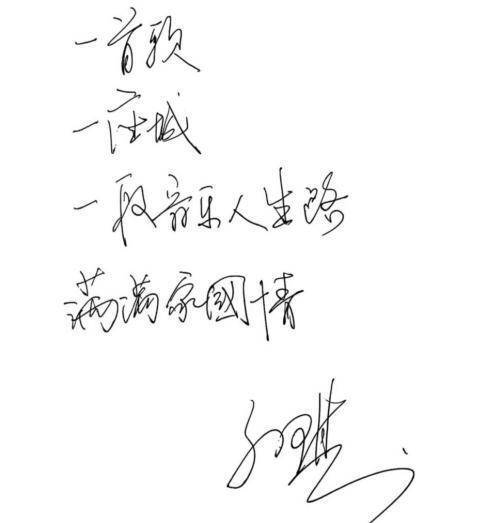 一首歌
一座城
一段音乐人生路
满满家國情